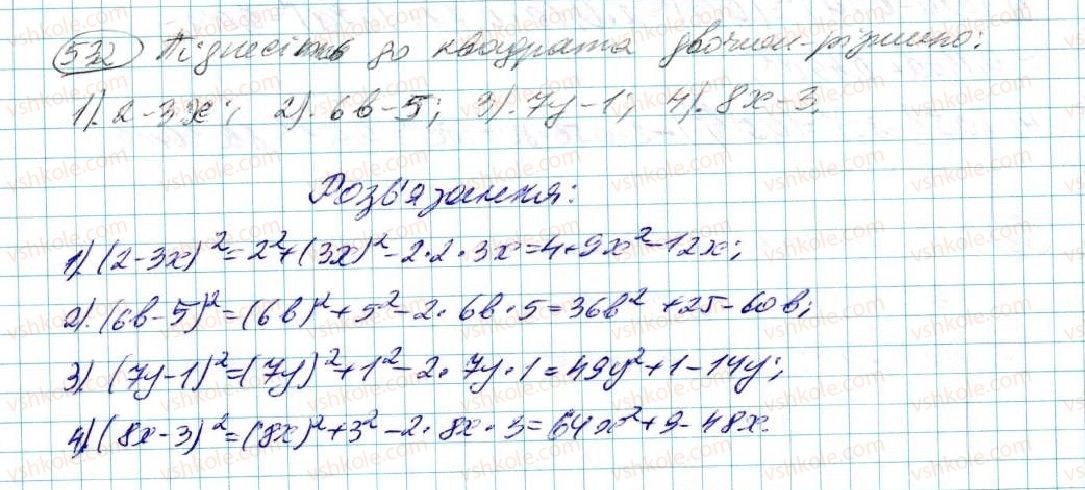 532 Піднесіть до квадрата двочлен-різницю:
1). 2-3x; 2). 6b-5; 3). 7y-1; 4). 8x-3.
Розв'язання:
1) (2-3x)²=2²+(3x)²-2·2·3x=4+9x²-12x;
2). (6b-5)²=(6b)²+5²-2·6b·5=36b²+25-60b;
3) (7y-1)²=(7y)²+1²-2·7y·1=49y²+1-14y;
4) (8x-3)²=(8x)²+3²-2·8x·3=64x²+9-48x.